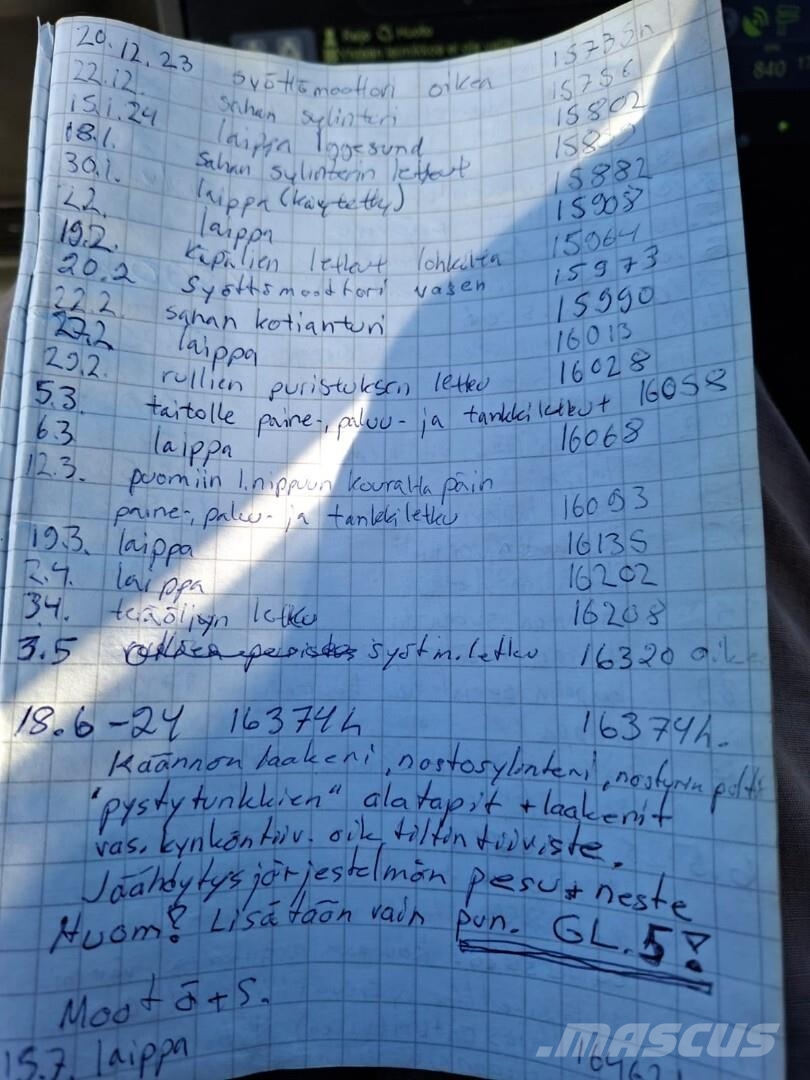 Huolto
840
20.12.23 syöttömoottori oikea 15735h
22.12. sahan sylinteri 15756
15.1.24 laippa Iggesund 15802
18.1. sahan sylinterin letkut
30.1. laippa (käytetty) 15882
2.2. laippa 15908
19.2. käpälien letkut lohkolta 15964
20.2 syöttömoottori vasen 15973
22.2. sahan kotianturi 15990
27.2 laippa 16013
29.2. rullien puristuksen letku 16028
5.3. taitolle paine-, paluu- ja tankkiletkut 16058
6.3 laippa 16068
12.3. puomiin 1.nippuun kouralta päin
paine-, paluu- ja tankkiletku 16093
19.3. laippa 16135
2.4. laippa 16202
3.4. teräöljyn letku 16208
3.5 syöt m. letku 16320 oikea
18.6-24 16374h 16374h.
Käännön laakeri, nostosylinteri, nosturin
"pystytunkkien" alatapit + laakerit
vas. oik. tiltin tiiviste.
Jäähdytysjärjestelmän pesu + neste
Huom! Lisätään vain pun. GL.5!
Moot ö+s.
15.7. laippa
MASCUS